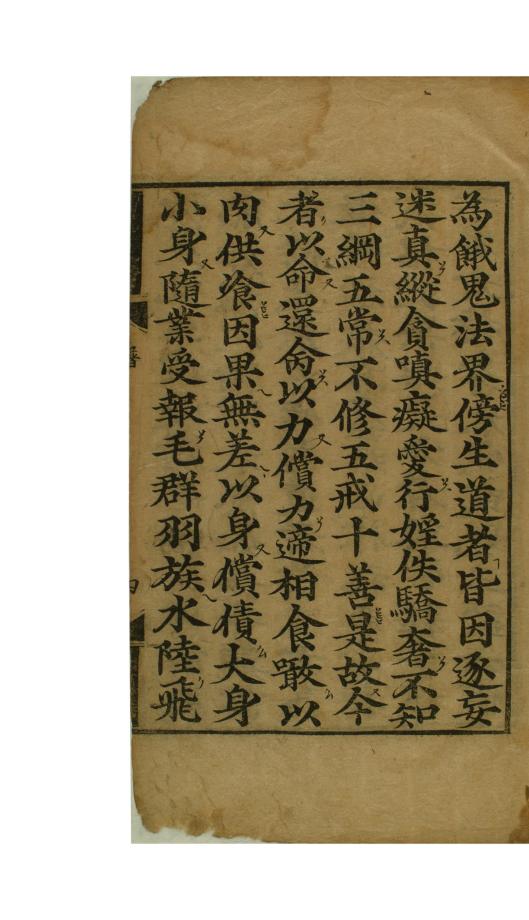 為餓鬼法界傍生道者皆因逐妄
迷真縱貪嗔癡愛行婬佚驕奢不知
三綱五常不修五戒十善是故今
者以命還命以力償力遞相食噉以
肉供飡因果無差以身償債大身
小身隨業受報毛群羽族水陸飛